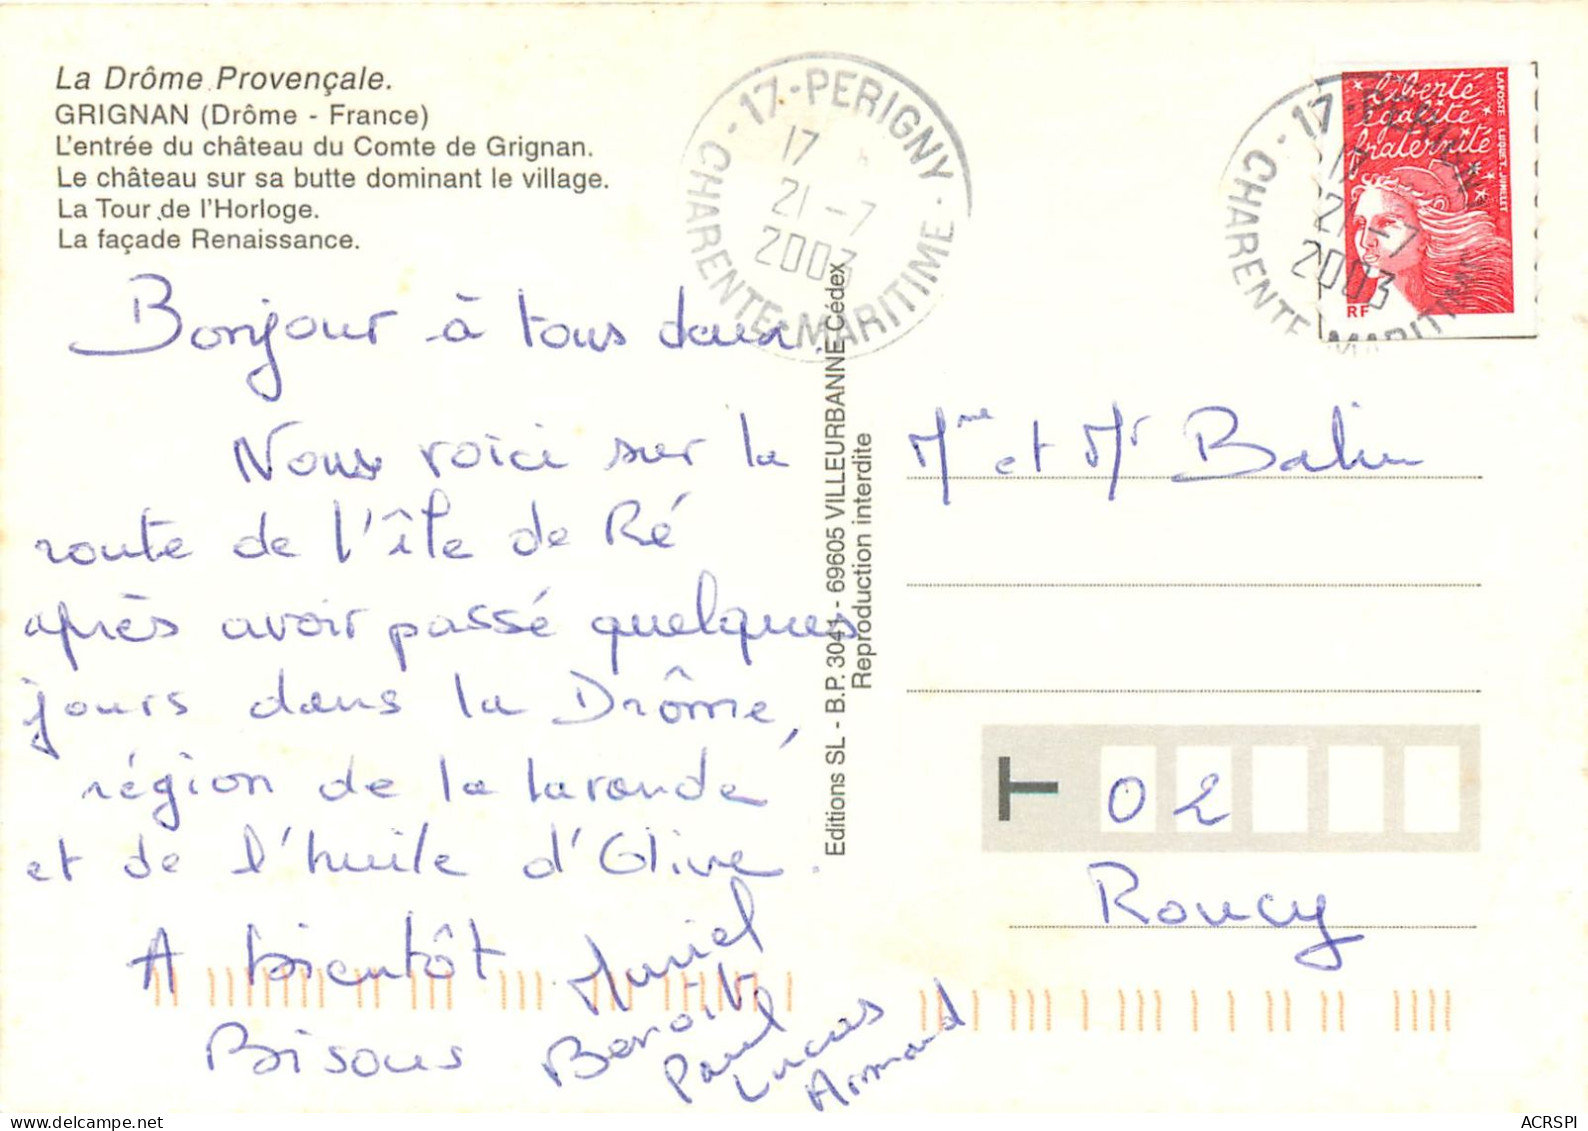 La Drôme Provençale.
GRIGNAN (Drôme - France)
L'entrée du château du Comte de Grignan.
Le château sur sa butte dominant le village.
La Tour de l'Horloge.
La façade Renaissance.
17-PERIGNY
17
21-7
2003
CHARENTE-MARITIME
liberté
égalité
fraternité
LA POSTE LUQUET. JUMELET
RF
17-PERIGNY
17
21-7
2003
CHARENTE-MARITIME
Bonjour à tous deux.
Nous voici sur la
route de l'île de Ré
après avoir passé quelques
jours dans la Drôme,
région de la lavande
et de l'huile d'Olive.
A bientôt
Bisous
Muriel
Benoît
Paul
Lucas
Armand
Editions SL - B.P. 3041 - 69605 VILLEURBANNE Cédex
Reproduction interdite
Mme et Mr Balin
T 02
Roucy
ACRSPI